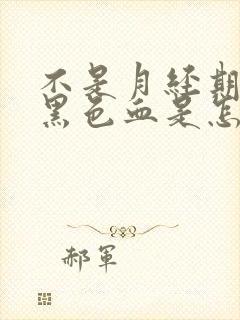 不是月经期
黑色血是怎
郝军